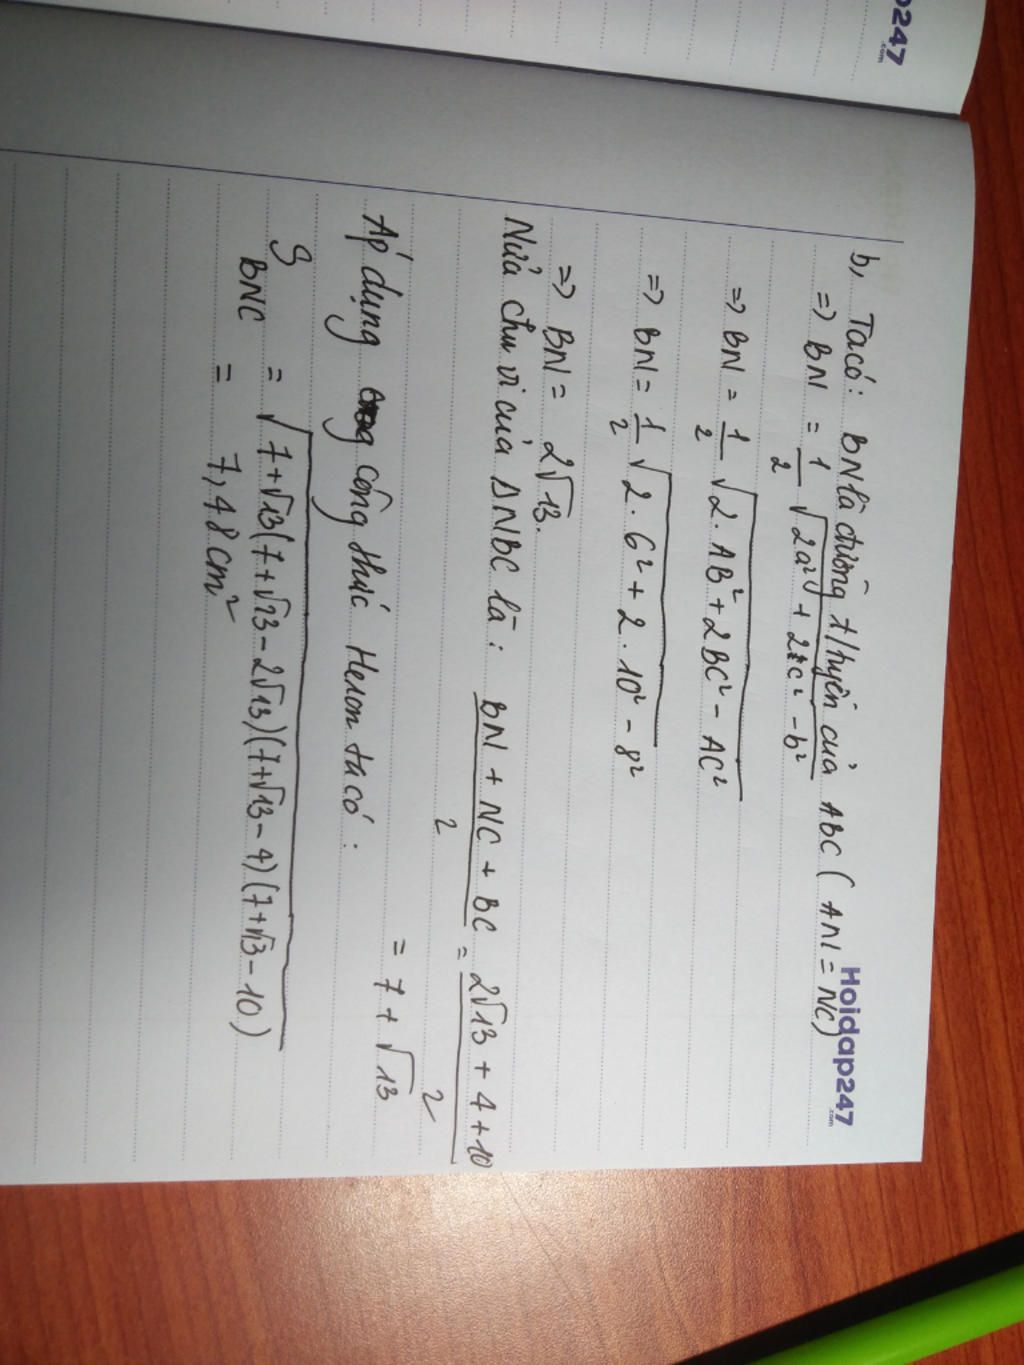 247
.com
Hoidap247
.com
b, Ta có: BN là đường t/tuyến của ABC ( AN = NC)
=> BN = 1/2 √2a² + 2c² - b²
=> BN = 1/2 √2. AB² + 2BC² - AC²
=> BN = 1/2 √2. 6² + 2. 10² - 8²
=> BN = 2√13.
Nửa chu vi của ΔNBC là: BN + NC + BC / 2 = 2√13 + 4 + 10 / 2
= 7 + √13
Áp dụng công thức Heron ta có:
S BNC = √7+√13(7+√13 - 2√13)(7+√13 - 4)(7+√13 - 10)
= 7,48 cm²